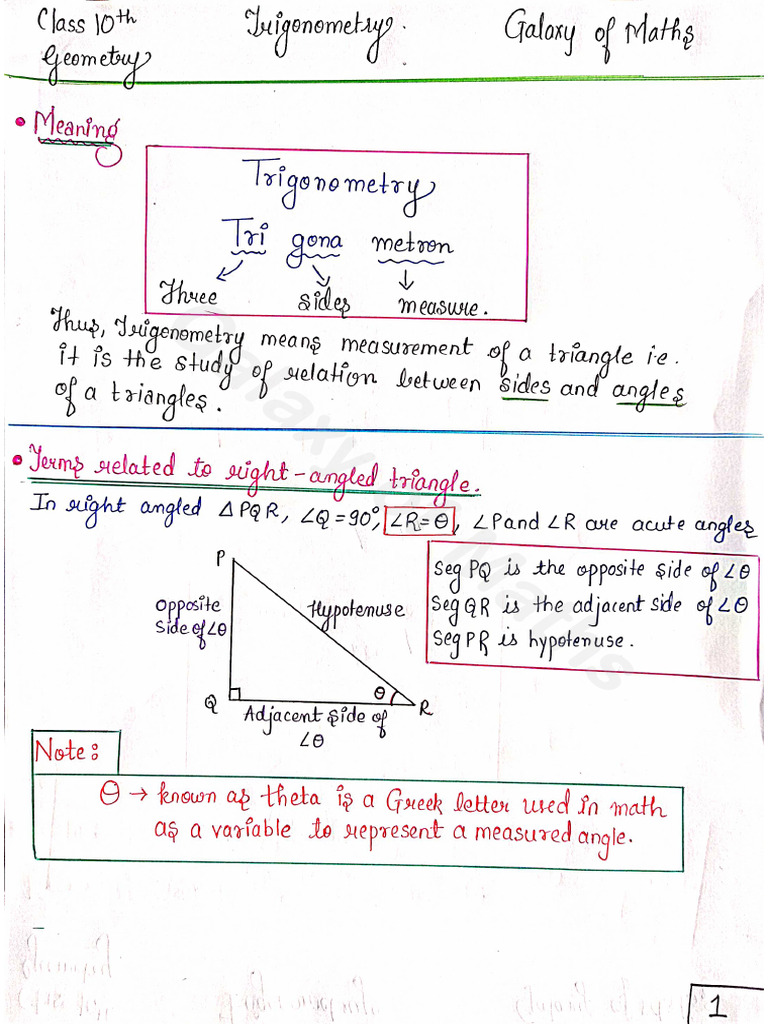 Class 10th Trigonometry. Galaxy of Maths
Geometry
• Meaning
Trigonometry
Tri gona metron
Three sides measure.
Thus, Trigonometry means measurement of a triangle i.e.
it is the study of relation between sides and angles
of a triangles.
• Terms related to right-angled triangle.
In right angled △PQR, ∠Q=90°, ∠R=θ, ∠P and ∠R are acute angles
P
Opposite
Side of ∠θ
Hypotenuse
Seg PQ is the opposite side of ∠θ
Seg QR is the adjacent side of ∠θ
Seg PR is hypotenuse.
Q θ R
Adjacent side of
∠θ
Note:
θ → known as theta is a Greek letter used in math
as a variable to represent a measured angle.
Galaxy of Maths
1